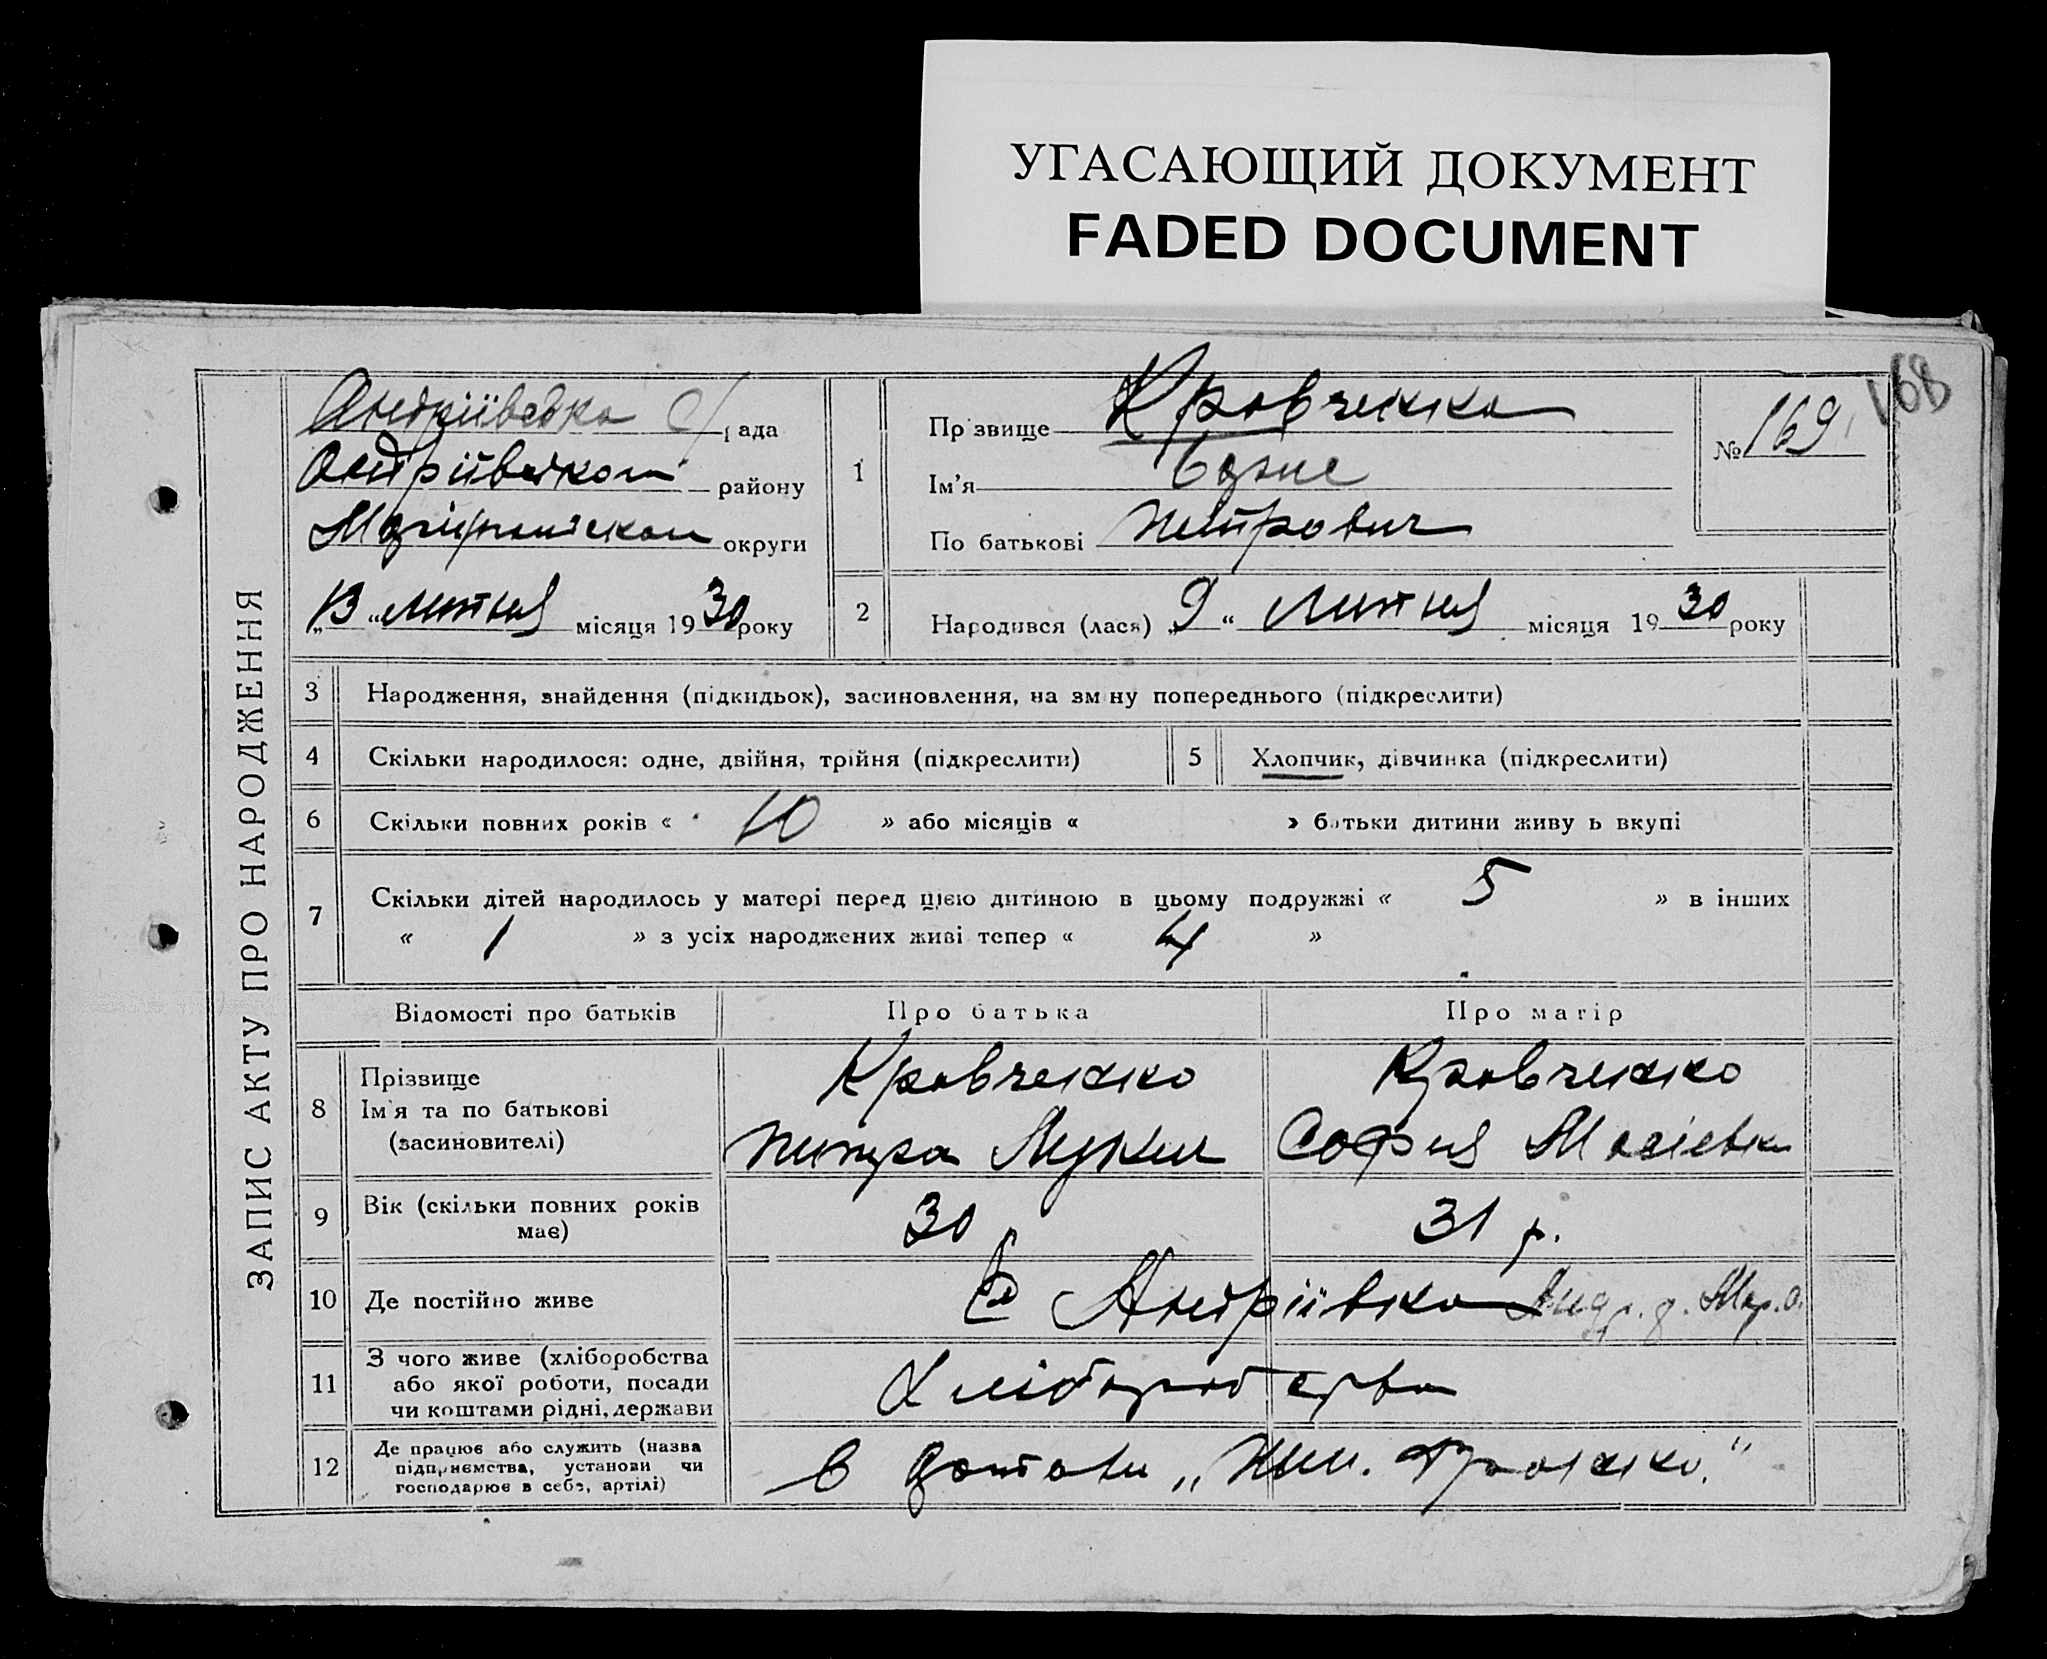 УГАСАЮЩИЙ ДОКУМЕНТ
FADED DOCUMENT
168
ЗАПИС АКТУ ПРО НАРОДЖЕННЯ
Андріївська С/рада
Андріївської району
округи
„13“ лютня місяця 1930 року
1
Прізвище Кравченко
Ім'я
По батькові Петрович
№ 169
2 Народився (лася) „9“ лютня місяця 1930 року
3 Народження, знайдення (підкидьок), засиновлення, на зміну попереднього (підкреслити)
4 Скільки народилося: одне, двійня, трійня (підкреслити)
5 Хлопчик, дівчинка (підкреслити)
6 Скільки повних років « 10 » або місяців « » батьки дитини живуть вкупі
7 Скільки дітей народилось у матері перед цією дитиною в цьому подружжі « 5 » в інших
« 1 » з усіх народжених живі тепер « 4 »
Відомості про батьків Про батька Про матір
8 Прізвище Кравченко Кравченко
Ім'я та по батькові
(засиновителі) Петро Лукич София
9 Вік (скільки повних років має) 30 31 р.
10 Де постійно живе С Андріївка
11 З чого живе (хліборобства
або якої роботи, посади
чи коштами рідні, держави
Хліборобства
12 Де працює або служить (назва
підприємства, установи чи
господарює в себе, артілі)
в